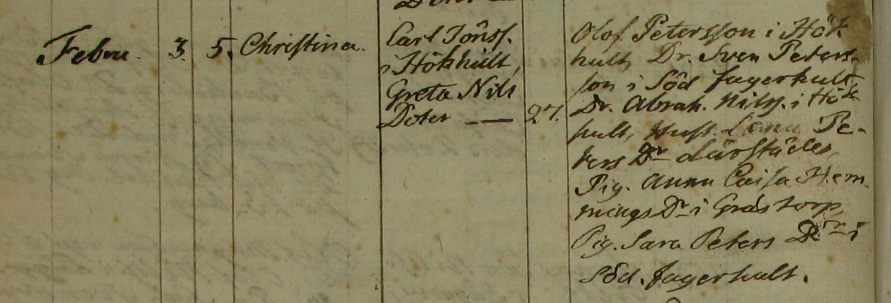 Febru. 3. 5. Christina.
Carl Jönss.
i Hökhult,
Greta Nils
Doter — 27.
Olof Petersson i Hök
hult, Dr. Sven Peters-
son i Söd Fagerhult
Dr. Abrah. Nilss. i Hök
hult, Hust. Lena Pe-
ters Dr därstädes,
Pig. Anna Caisa Hem-
mings Dr i Gråstorp,
Pig. Sara Peters Dr i
Söd. Fagerhult.